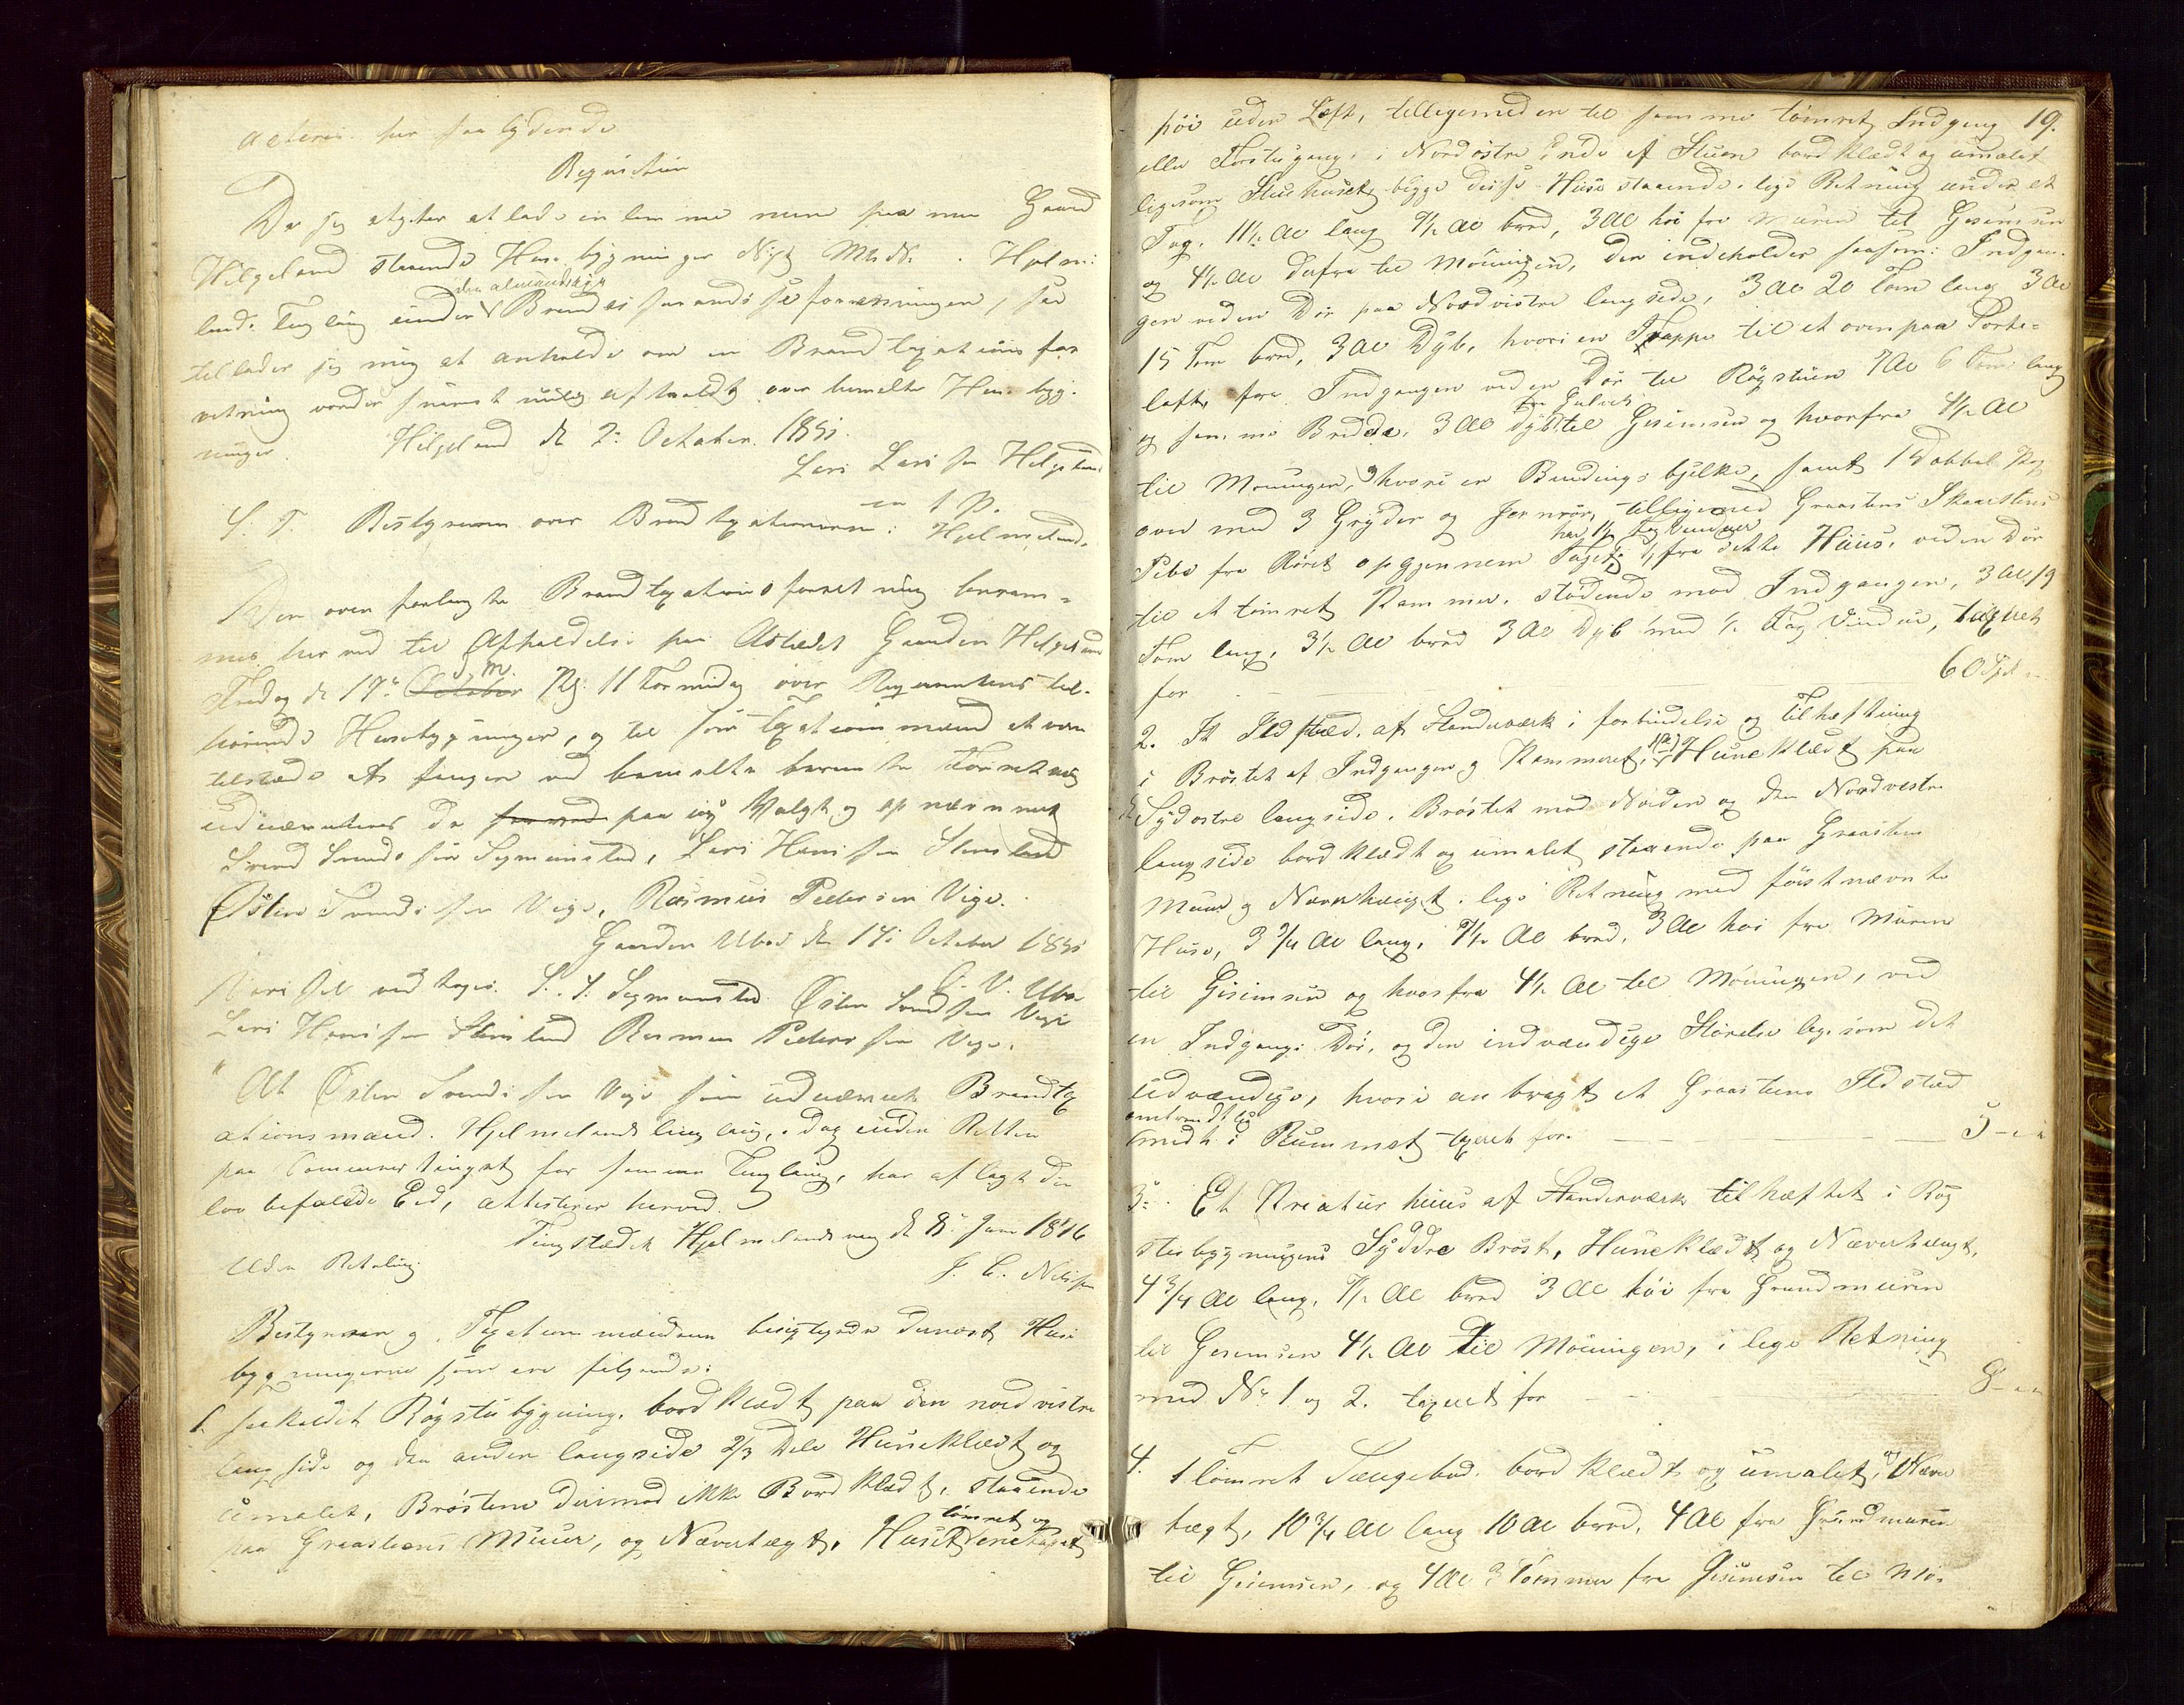 acteres her saa lydende
Requisition
Da jeg agter at lade in lemme mine paa min Gaard
Helgeland staaende Huse bygninger Nyt Mt: No. Hjelme-
lands Tinglaug under den almindelige Brandassuranceforordningen, saa
tillader jeg mig at anholde om en Brandtaxationsfor
retning vorder snarest mulig afholdt over bemelte Huse byg-
ninger. Helgeland d. 2. October 1851.
Lars Larssen Helgeland
m. f. P.
S. T. Bestyreren over Brandtaxationerne i Hjelmeland.
Den oven forlangte Brandtaxationsforretning beram-
mes herved til Afholdelse paa Aastedet Gaarden Helgeland
Fredag d. 17de October d. M. Kl. 11 Formidag over Requirentens til-
hørende Husebygninger, og til som Taxationsmænd at være
tilstæde at fungere ved bemelte berammede Forretning
udnævntes de paa ny Valgt og opnævnnet
Svend Svendssen Segmunstad, Lars Hanssen Steinsland
Østen Svendssen Vige, Rasmus Pedersen Vige.
Gaarden Ubøe den 14: October 1851
O. V. Ubøe
Varslet vedtages. S. S. Segmunstad Østen Svendssen Vige
Lars Hanssen Steinsland Rasmus Pederssen Vige.
"At Østen Svendssen Vige som udnævnte Brandtax
ationsmand i Hjelmelands Tinglaug, i Dag inden Retten
paa Sommertinget for samme Tinglaug, har aflagt den
lov befalede Eed, attesteres herved.
Tingstædet Hjelmelandsvaag d. 8: Juni 1846
Uden Betaling J. C. Nilssen
Bestyreren og Taxationsmændene besigtigede dernæst Huse
bygningerne som ere følgende:
1. saakaldet Røgstubygning, bordklædt paa den nordvestre
langside og den anden langside 2/3 Dele Huneklædt og
umalet, Brøstene derimod ikke Bordklædt, staaende
paa Graasteens Muur, og Nævertægt, Huset tømret og
19.
høi uden Loft, tilligemed en til samme tømret Indgang
eller Forstugang, i Nordøstre Ende af Stuen bordklædt og umalet
ligesom Stuehuset, begge disse Huse staaende i lige Retning under et
Tag. 11 1/2 Al lang 7 1/2 Al bred, 3 Al høi fra Muren til Gesimsen
og 4 1/2 Al derfra til Møningen, den indeholder saasom: Indgan-
gen ved en Dør paa Nordvestre langside, 3 Al 20 Tom lang 3 Al
15 Tom bred, 3 Al Dyb, hvori en Trappe til et ovenpaa Torke-
loft, fra Indgangen ved en Dør til Røgstuen 7 Al 6 Tom lang
og samme Bredde, 3 Al dyb fra Gulvet til Gesimsen og hvorfra 4 1/2 Al
til Møningen, hvori en Bindings bjelke, samt 1 Dobbel Kog
oven med 3 Gryder og Jernrør, tilligemed Graasteens Skaarsteens
Pibe fra Røret opgjennem Taget, har 1 1/2 Fag Vinduer fra dette Huus, ved en Dør
til et tømret Kammer, stødende mod Indgangen, 3 Al 19
Tom lang, 3 1/2 Al bred 3 Al dyb med 1/2 Fag Vindue, taxeret
for 60 Spd "
2. It Ildstæd, af Standerværk i forbindelse og Tilhæftning
i Brøstet af Indgangen og Kammeret, Huneklædt paa
Sydøstre langside, Brøstet mod Norden og den Nordvestre
langside bordklædt og umalet staaende paa Graasteens
Muur og Nævertægt, i lige Retning med førstnævnte
Huse, 3 3/4 Al lang, 7 1/2 Al bred, 3 Al høi fra Muren
til Gesimsen og hvorfra 4 1/2 Al til Møningen, ved
en Indgangs Dør, og den indvændige Størelse ligesom det
udvændige, hvori anbragt et Graasteens Ildstæd
omtrendtlig midt i Rummet taxeret for 5 - " "
3: Et Kreaturhuus af Standerværk tilhæftet i Røg
stubygningens Syddre Brøst, Huneklædt og Nævertægt,
4 3/4 Al lang, 7 1/2 Al bred 3 Al høi fra Grundmuren
til Gesimsen 4 1/2 Al til Møningen, i lige Retning
med No 1 og 2. taxeret for 8 - " "
4. 1 tømret Sængebod, bordklædt og umalet, og Næver
tægt, 10 3/4 Al lang 10 Al bred, 4 Al fra Grundmuren
til Gesimsen, og 4 Al 3 Tommer fra Gesimsen til Mø-